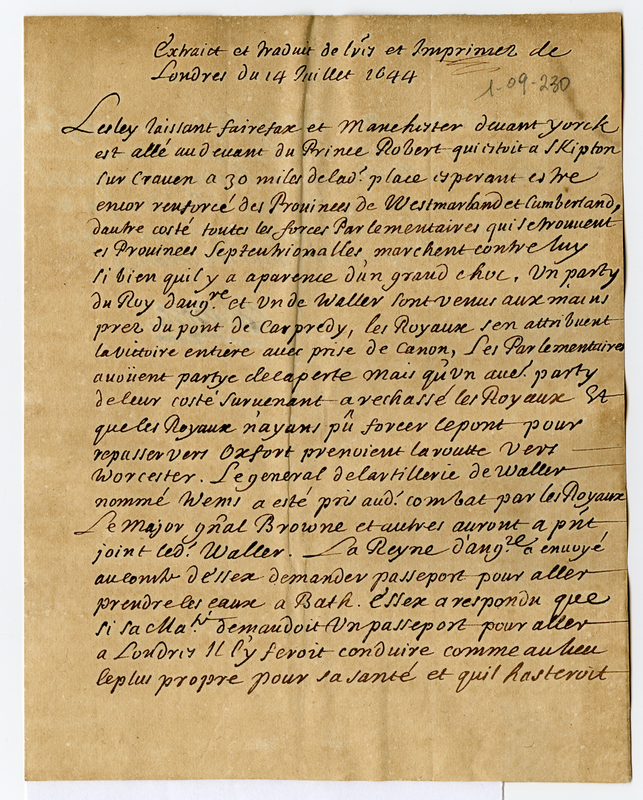 Extraict et traduit de lr̃es et Imprimez de
Londres du 14 Juillet 1644
1-09-230
Lesley laissant fairefax et Manchester devant yorck
est allé audevant du Prince Robert qui estoit a Skipton
sur Craven a 30 miles deladᵗ. place esperant estre
encor renforcé des Provinces de Westmarland et Cumberland,
dautre costé toutes les forces Parlementaires qui se trouvent
es Provinces Septentrionalles marchent contre luy
si bien quil y a aparence d'un grand choc, Un party
du Roy dangʳᵉ et Un de Waller sont venus aux mains
prez du pont de Carpredy, les Royaux sen attribuent
la victoire entiere avec prise de Canon, Les Parlementaires
avoüent partye de la perte mais qu'Un auᵗ. party
de leur costé survenant a rechassé les Royaux Et
que les Royaux n'ayans pû forcer le pont pour
repasser vers Oxfort prenoient la routte Vers
Worcester. Le general de lartillerie de Waller
nommé Wems a esté pris audᵗ. combat par les Royaux
Le Major gñal Browne et autres auront a pñt
joint ledᵗ. Waller. La Reyne d'angʳᵉ a envoyé
au comte d'Essex demander passeport pour aller
prendre les eaux a Bath. Essex a respondu que
si sa Maᵗᵉ demandoit Un passeport pour aller
a Londres Il l'y feroit conduire comme au lieu
le plus propre pour sa santé et quil hasteroit